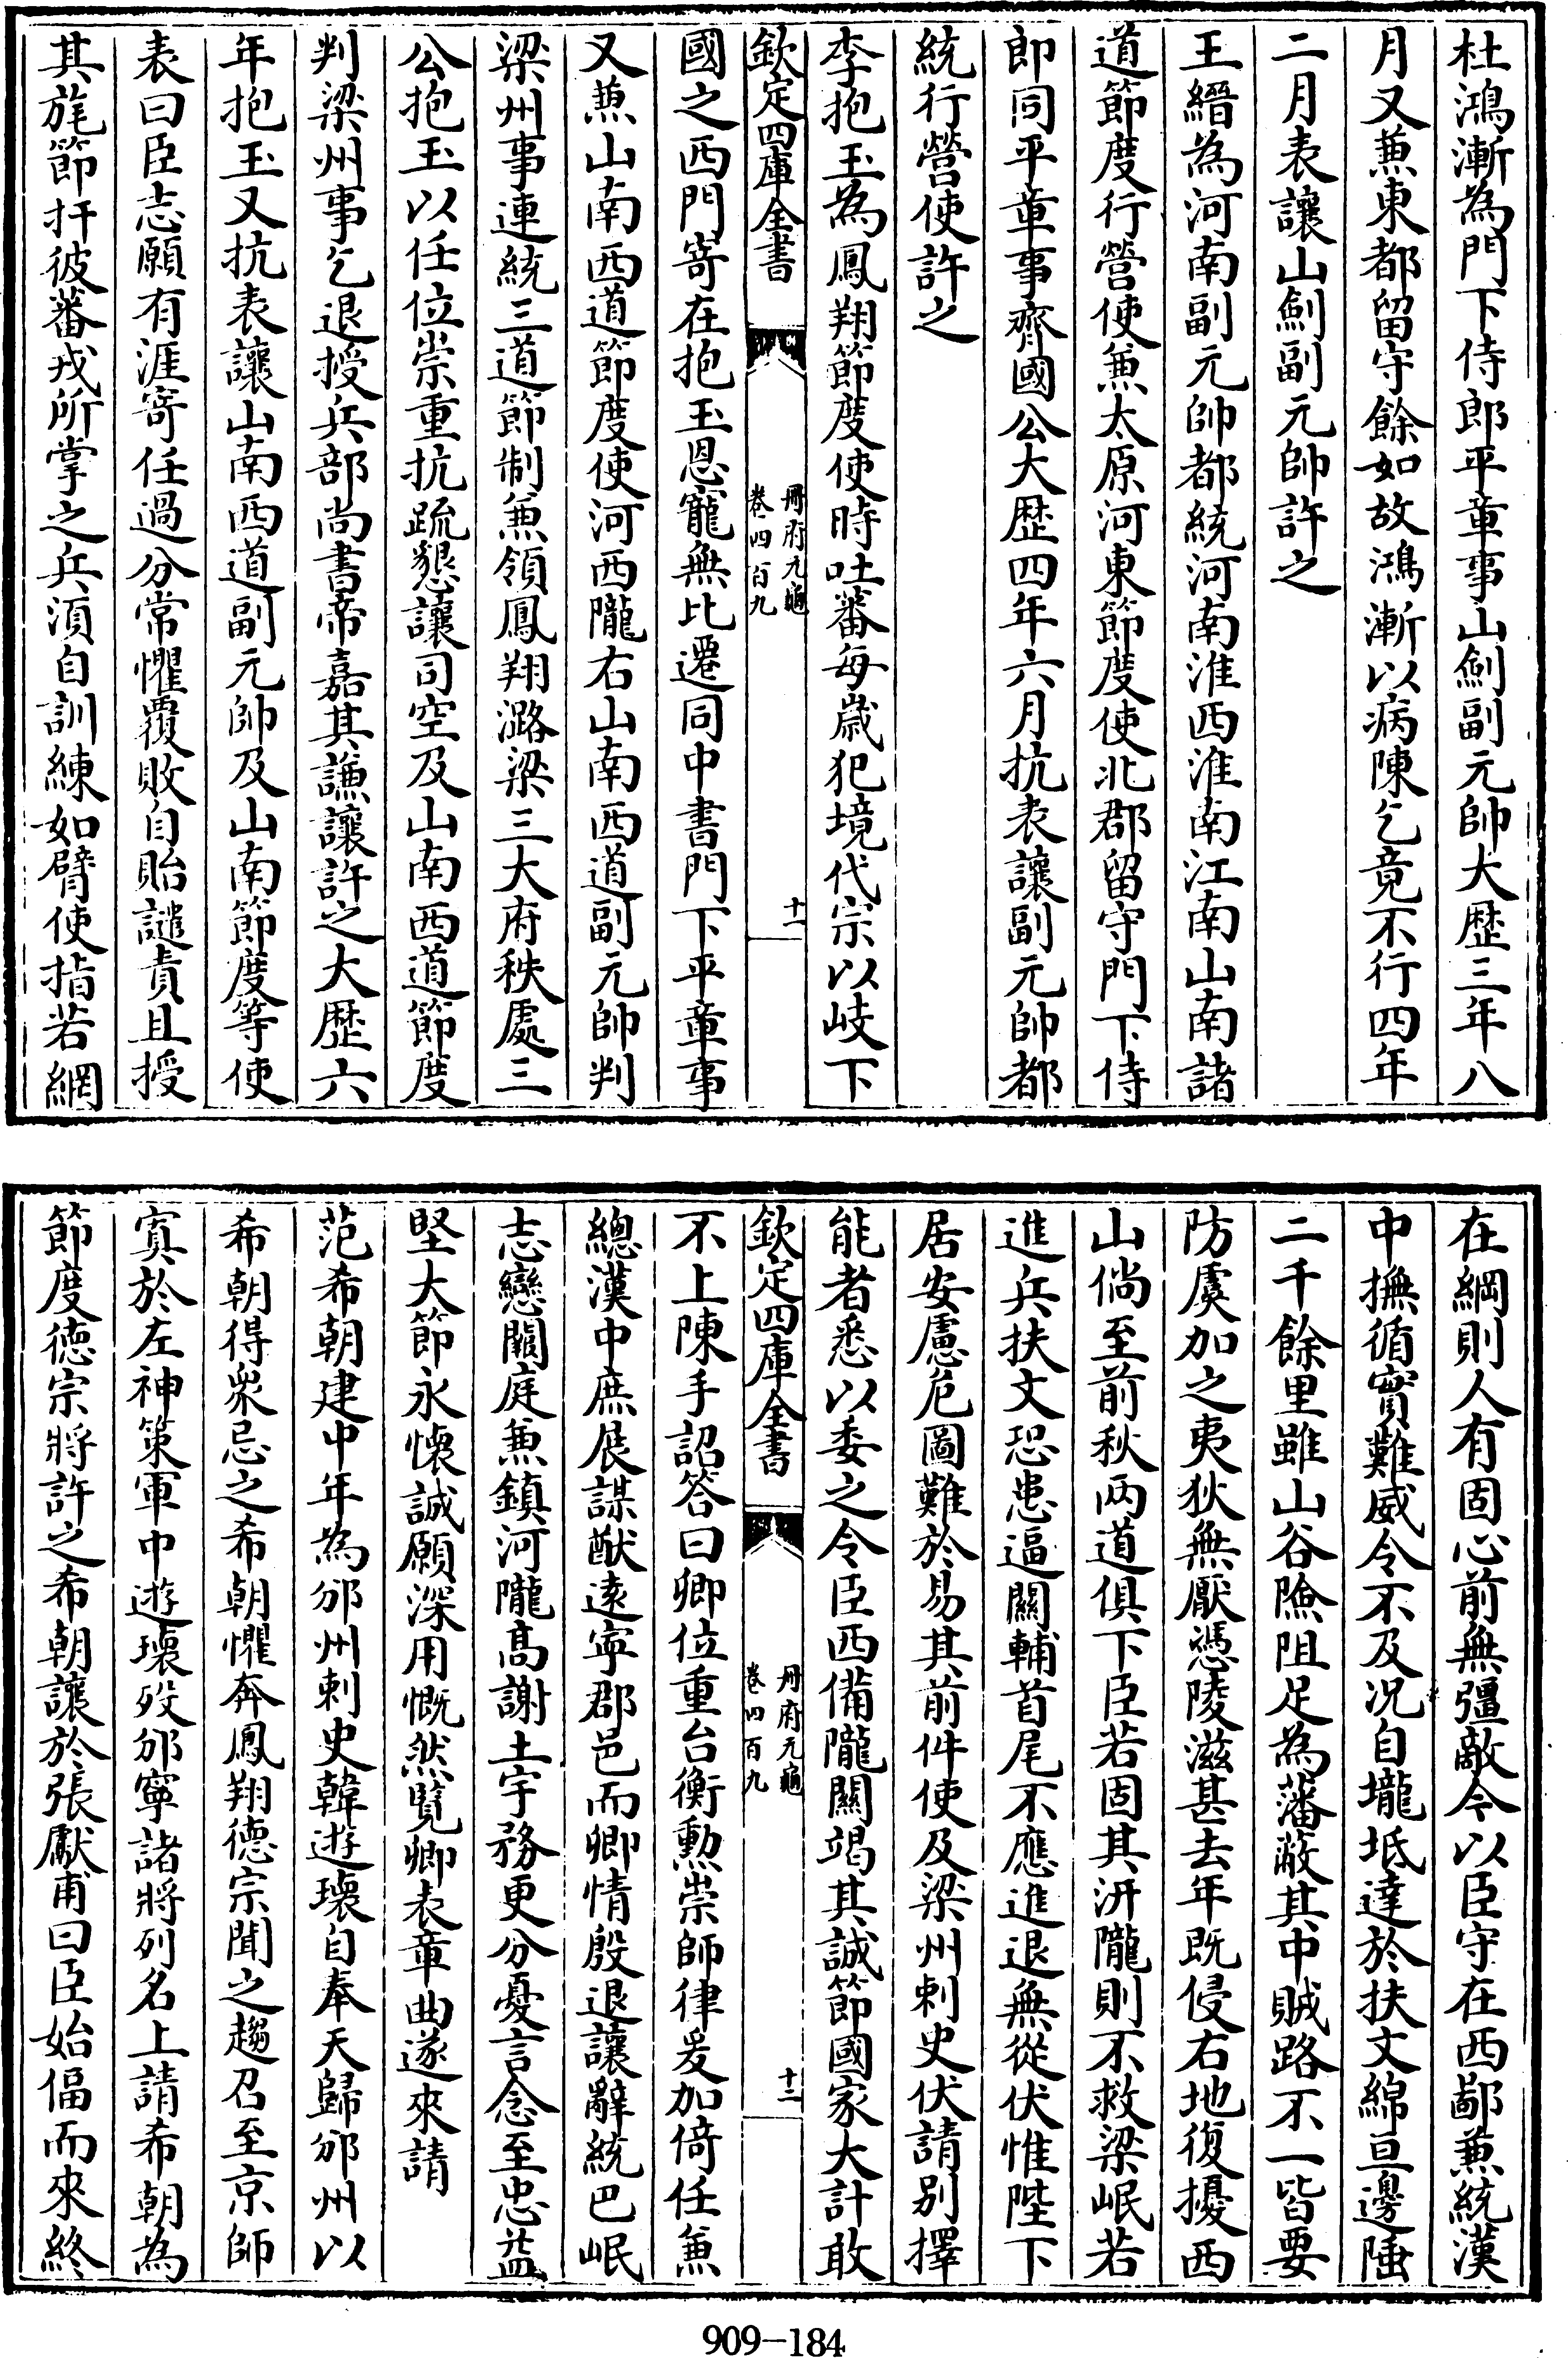 杜鴻漸為門下侍郎平章事山劍副元帥大歴三年八
月又兼東都留守餘如故鴻漸以病陳乞竟不行四年
二月表讓山劍副元帥許之
王縉為河南副元帥都統河南淮西淮南江南山南諸
道節度行營使兼太原河東節度使北郡留守門下侍
郎同平章事齊國公大歴四年六月抗表讓副元帥都
統行營使許之
李抱玉為鳳翔節度使時吐蕃每歲犯境代宗以岐下
欽定四庫全書
冊府元龜
卷四百九
十一
國之西門寄在抱玉恩寵無比遷同中書門下平章事
又兼山南西道節度使河西隴右山南西道副元帥判
梁州事連統三道節制兼領鳳翔潞梁三大府秩處三
公抱玉以任位崇重抗疏懇讓司空及山南西道節度
判梁州事乞退授兵部尚書帝嘉其謙讓許之大歴六
年抱玉又抗表讓山南西道副元帥及山南節度等使
表曰臣志願有涯寄任過分常懼覆敗自貽譴責且授
其旄節扞彼蕃戎所掌之兵須自訓練如臂使指若網
在綱則人有固心前無彊敵今以臣守在西鄙兼統漢
中撫循實難威令不及况自壠坻達於扶文綿亘邊陲
二千餘里雖山谷險阻足為藩蔽其中賊路不一皆要
防虞加之夷狄無厭憑陵滋甚去年既侵右地復擾西
山倘至前秋两道俱下臣若固其汧隴則不救梁岷若
進兵扶文恐患逼關輔首尾不應進退無從伏惟陛下
居安慮危圖難於易其前件使及梁州刺史伏請别擇
能者悉以委之令臣西備隴關竭其誠節國家大計敢
欽定四庫全書
冊府元龜
卷四百九
十二
不上陳手詔答曰卿位重台衡勲崇師律爰加倚任兼
總漢中庶展謀猷遠寧郡邑而卿情殷退讓辭統巴岷
志戀闕庭兼鎮河隴高謝土宇務更分憂言念至忠益
堅大節永懷誠願深用慨然覧卿表章曲遂來請
范希朝建中年為邠州刺史韓遊瓌自奉天歸邠州以
希朝得衆忌之希朝懼奔鳳翔德宗聞之趨召至京師
寘於左神策軍中遊瓌殁邠寧諸將列名上請希朝為
節度德宗將許之希朝讓於張獻甫曰臣始偪而來終
909-184